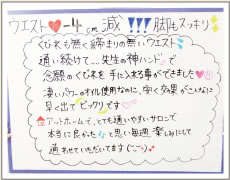 ウエスト♥-4cm減!!!脚もスッキリ
くびれも無く締まりの無いウエスト
通い続けて…先生の神ハンドで
念願のくびれを手に入れる事ができました♥
凄いパワーのオイル使用なのに、安く効果がこんなに
早く出てビックリです♥
アットホームで、とても通いやすいサロンで
本当に良かったなぁと思い毎週楽しみにして
通わせていただいてます(^-^)♪